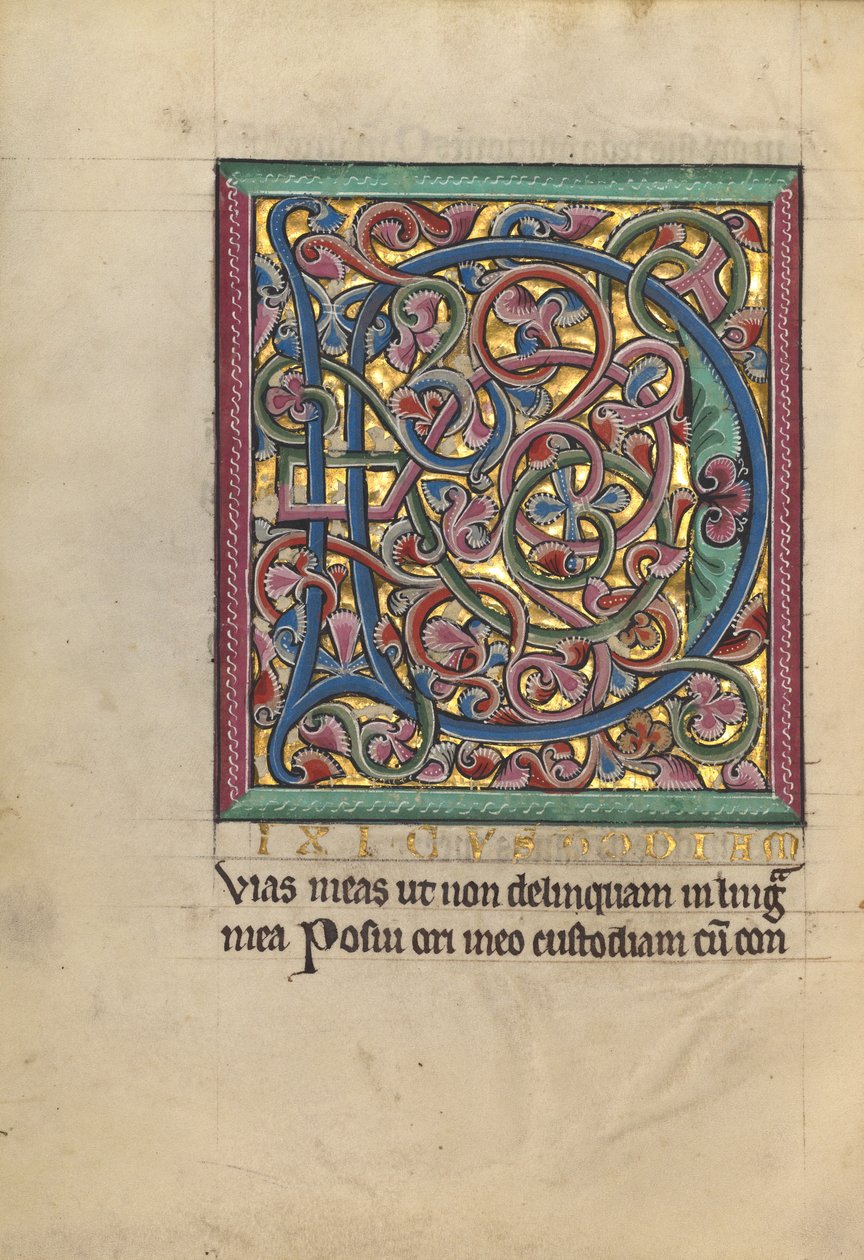 DIXI CVSTODIAM
vias meas ut non delinquam in lingᵃ
mea Posui ori meo custodiam cū con